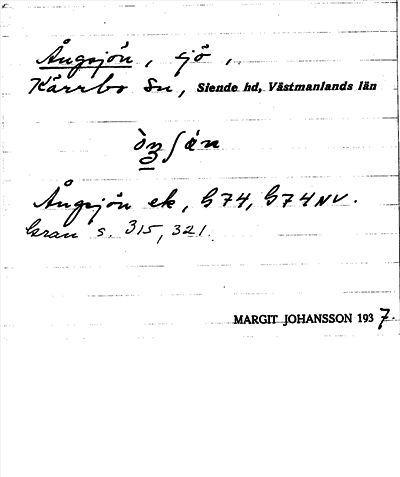 Ångsjön, sjö,
Kärrbo Sn, Siende hd, Västmanlands län
Ångsjön ek, G74, G74NV.
Gran s. 315, 321.
MARGIT JOHANSSON 1937.